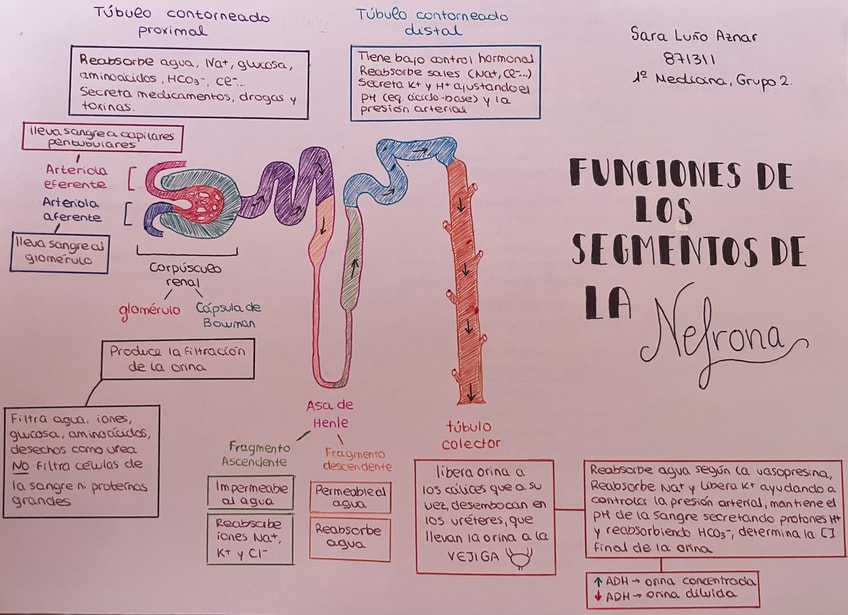 Túbulo contorneado
proximal
Reabsorbe agua, Na+, glucosa,
aminoácidos, HCO3-, Cl-...
Secreta medicamentos, drogas y
toxinas.
Túbulo contorneado
distal
Tiene bajo control hormonal
Reabsorbe sales (Na+, Cl-...)
Secreta K+ y H+ ajustando el
pH (eq. ácido-base) y la
presión arterial
Sara Luño Aznar
871311
1º Medicina, Grupo 2.
FUNCIONES DE
LOS
SEGMENTOS DE
LA Nefrona
lleva sangre a capilares
peritubulares
Arteriola
eferente
Arteriola
aferente
lleva sangre al
glomérulo
Corpúsculo
renal
glomérulo
Cápsula de
Bowman
Produce la filtración
de la orina
Filtra agua, iones,
glucosa, aminoácidos,
desechos como urea
NO filtra células de
la sangre ni proteínas
grandes
Asa de
Henle
Fragmento
Ascendente
Impermeable
al agua
Reabsorbe
iones Na+,
K+ y Cl-
Fragmento
descendente
Permeable al
agua
Reabsorbe
agua
túbulo
colector
libera orina a
los cálices que a su
vez desembocan en
los uréteres, que
llevan la orina a la
VEJIGA
Reabsorbe agua según la vasopresina,
Reabsorbe Na+ y libera K+ ayudando a
controlar la presión arterial, mantiene el
pH de la sangre secretando protones H+
y reabsorbiendo HCO3-, determina la CJ
final de la orina
↑ ADH → orina concentrada
↓ ADH → orina diluida